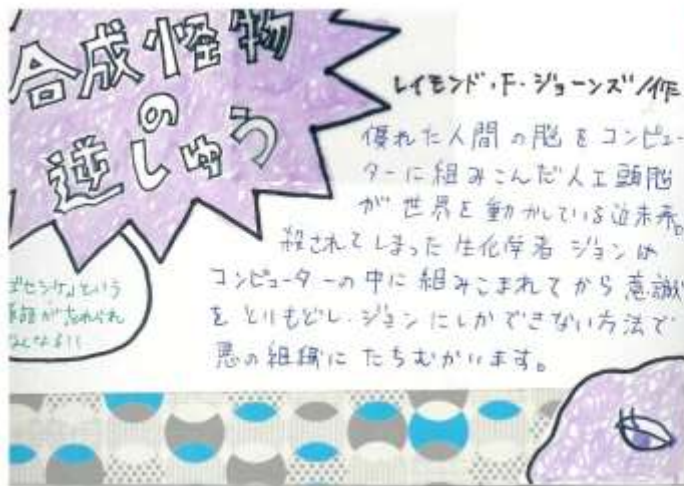 合成怪物
の
逆しゅう
レイモンド・F・ジョーンズ/作
優れた人間の脳をコンピュー
ターに組みこんだ人工頭脳
が世界を動かしている近未来。
殺されてしまった生化学者 ジョンは
コンピューターの中に組みこまれてから意識
をとりもどし、ジョンにしかできない方法で
悪の組織にたちむかいます。
ゴセシケ」という
単語が忘れられ
なくなる!!